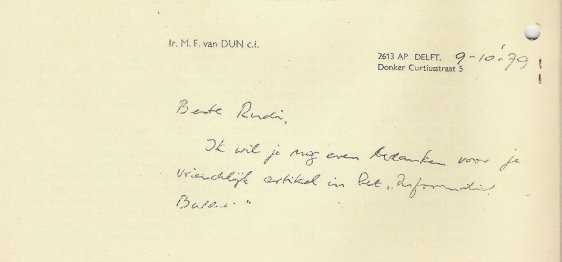 Ir. M. F. van DUN c.i.
2613 AP DELFT, 9-10-'79
Donker Curtiusstraat 5
Beste Rudi,
Ik wil je nog even bedanken voor je
vriendelijk artikel in het „Informatica
"